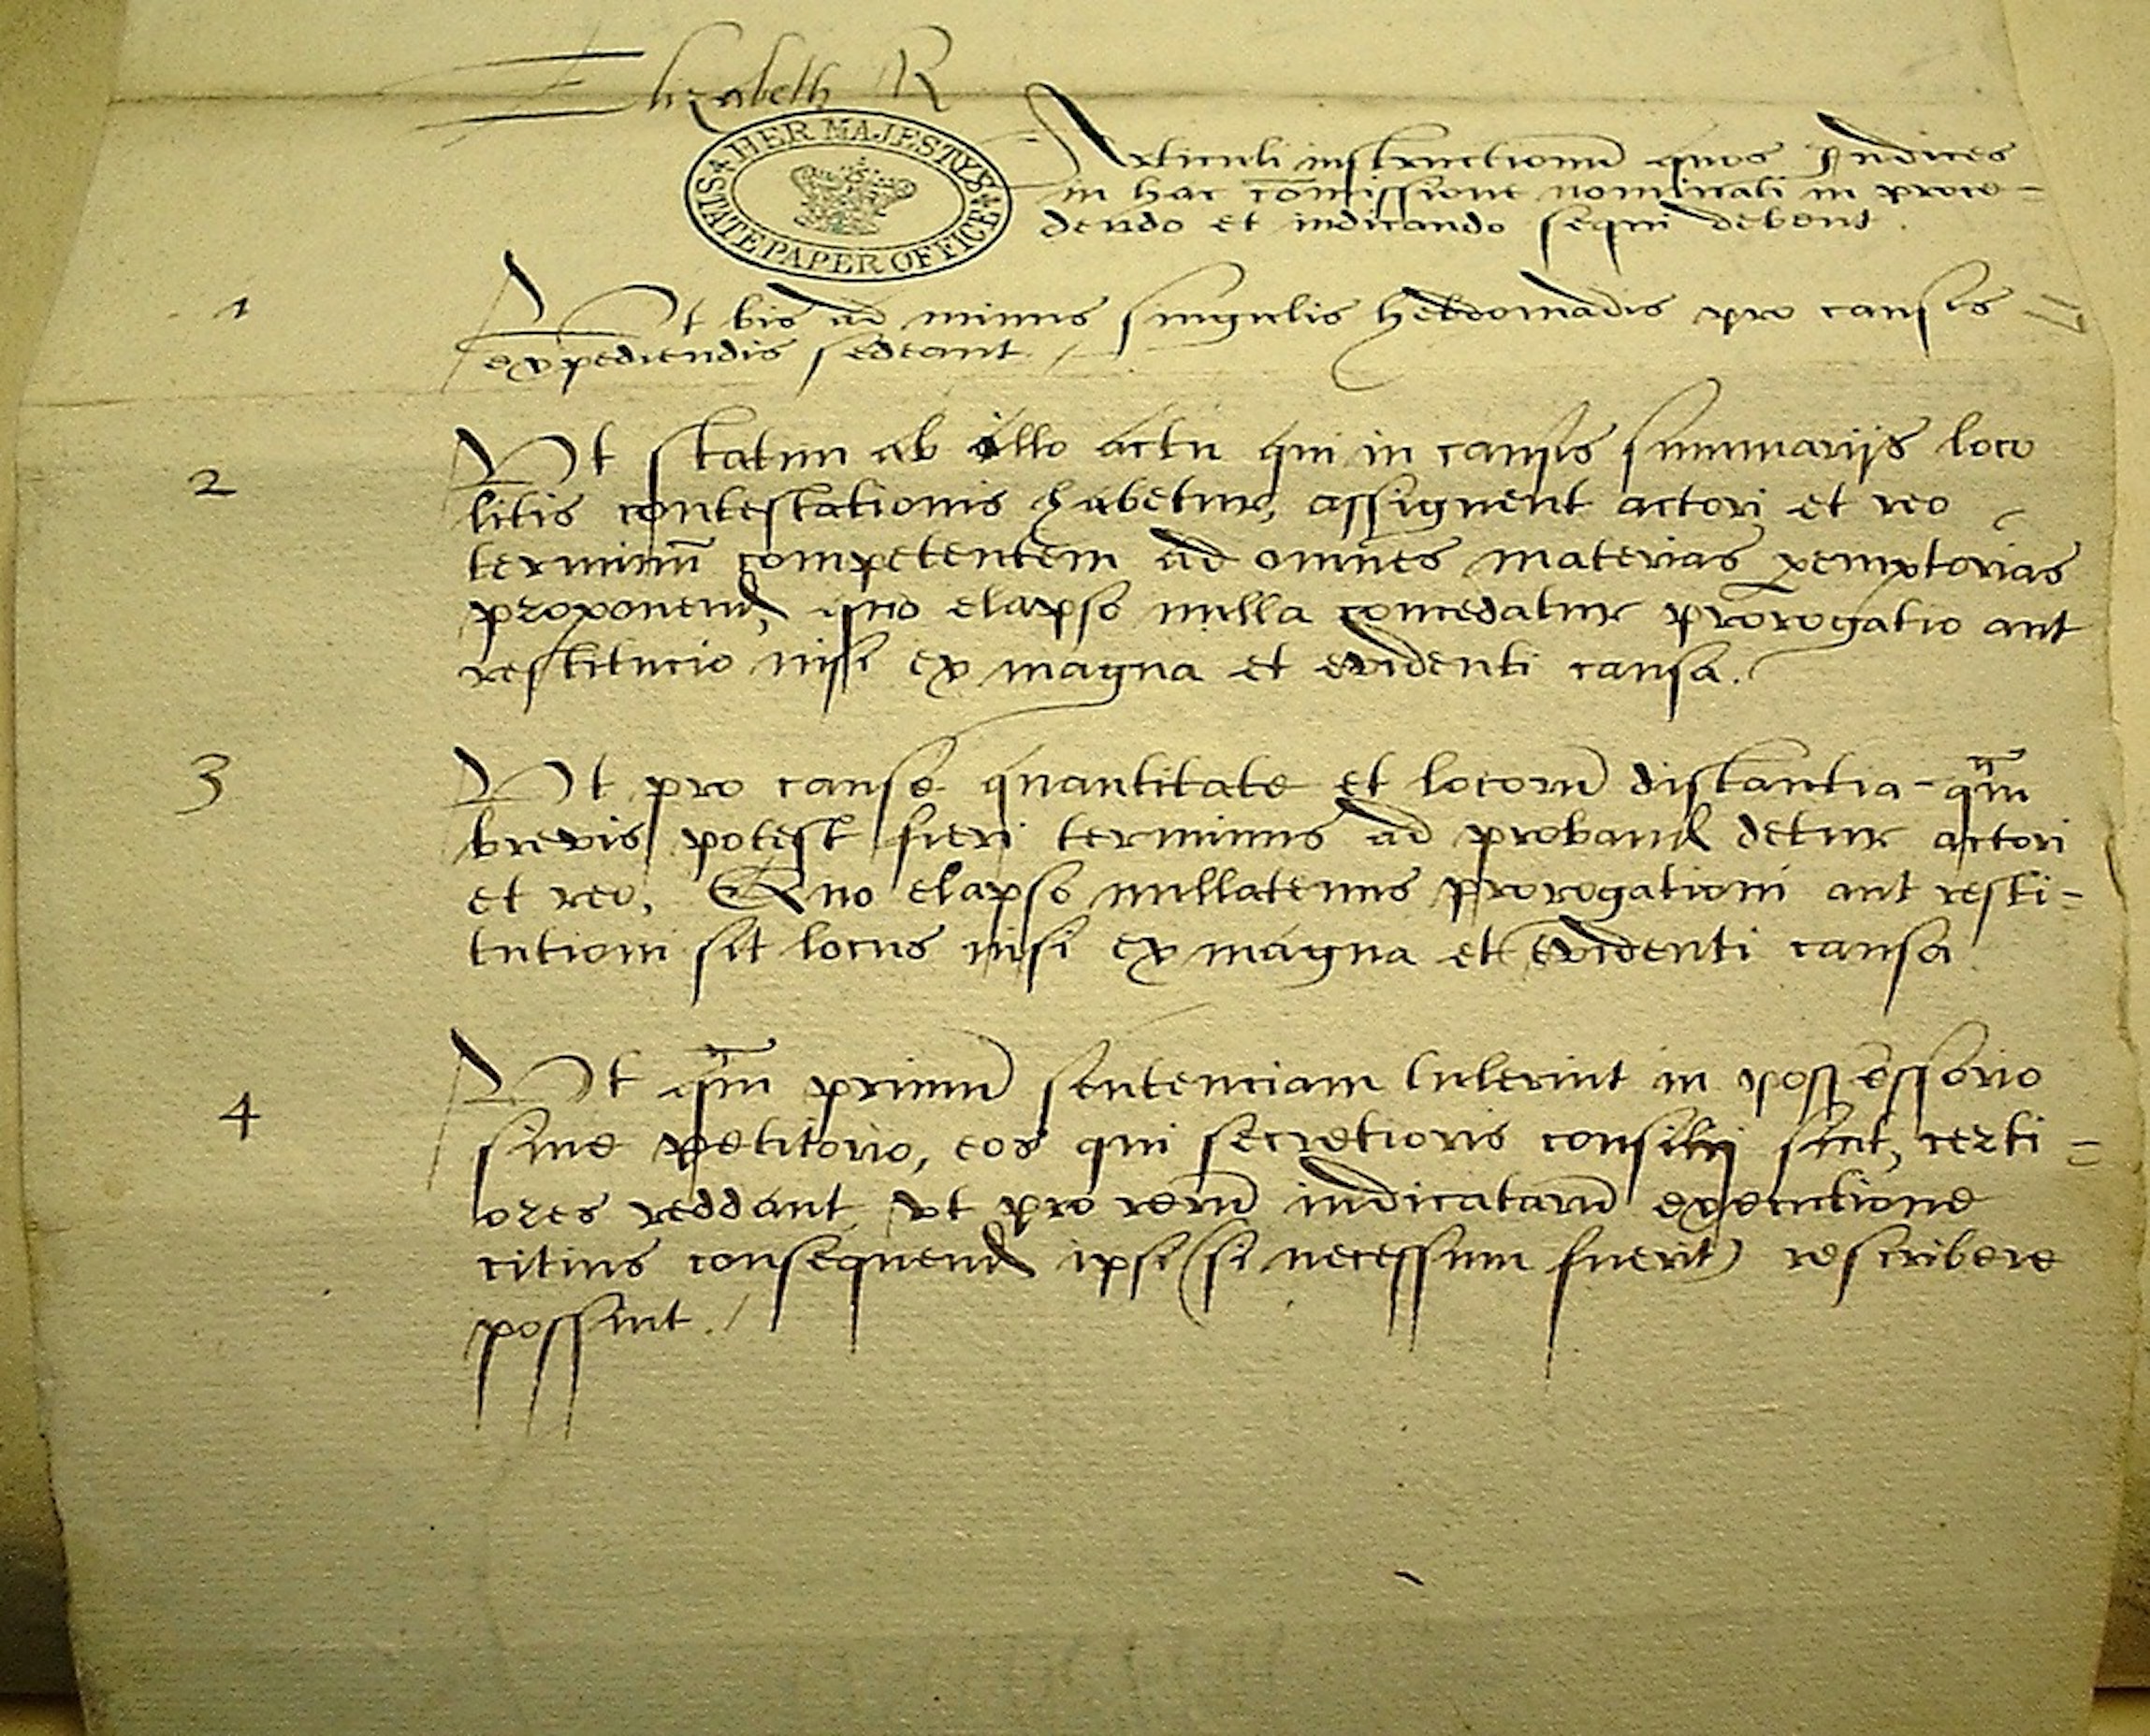 Elizabeth R
HER MAJESTYS
STATE PAPER OFFICE
Articuli instructionū quos Iudices
in hac cōmissione nominati in proce=
dendo et iudicando sequi debent.
1 Vt bis ad minus singulis hebdomadis pro causis
expediendis sedeant./
2 Vt statim ab illo actu qui in causis summarijs loco
litis contestationis habetur, assignent actori et reo
terminū competentem ad omnes materias peremptorias
proponend, quo elapso nulla concedatur prorogatio aut
restitucio nisi ex magna et evidenti causa.
3 Vt pro cause quantitate et locorū distantia qm̄
brevis potest fieri terminus ad proband detur actori
et reo, Quo elapso nullatenus prorogationi aut resti=
tutioni sit locus nisi ex magna et evidenti causa
4 Vt qm̄ primū sentenciam tulerint in possessorio
sive petitorio, eos qui secretioris consilij sint, certi=
ores reddant vt pro rerū iudicatarū executione
citius consequend ipsi (si necessum fuerit) rescribere
possint./